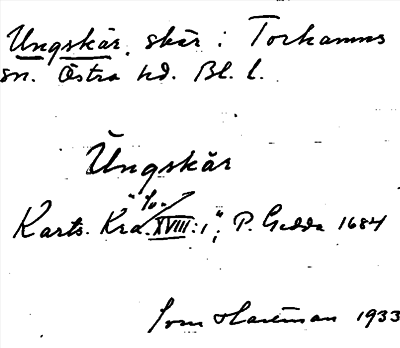 Ungskär, skär i Torhamns
sn. Östra hd. Bl. l.
Ungskär
Karts. Kra. XVIII:1", P. Gedda 1684
1933